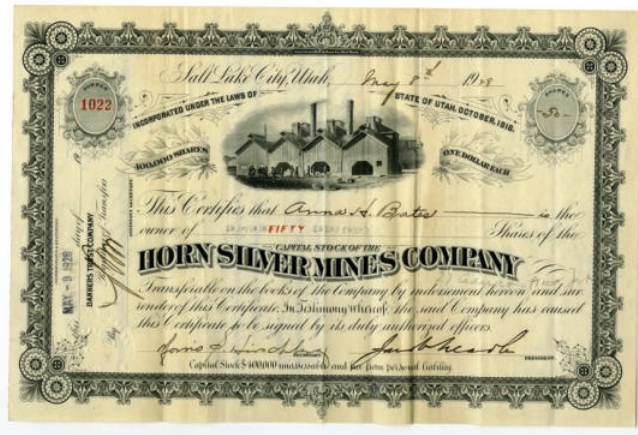 Salt Lake City, Utah, May 8th 1928
NUMBER
1022
INCORPORATED UNDER THE LAWS OF
STATE OF UTAH, OCTOBER, 1916.
SHARES
-50-
400,000 SHARES
ONE DOLLAR EACH
This Certifies that Anna H. Bates is the
owner of FIFTY Shares of the
CAPITAL STOCK OF THE
HORN SILVER MINES COMPANY
Transferable on the books of the Company by indorsement hereon and sur-
render of this Certificate. In Testimony Whereof, the said Company has caused
this Certificate to be signed by its duly authorized officers.
SECRETARY
PRESIDENT
Capital Stock $400,000 unassessable and free from personal liability.
MAY - 9 1928
BANKERS TRUST COMPANY